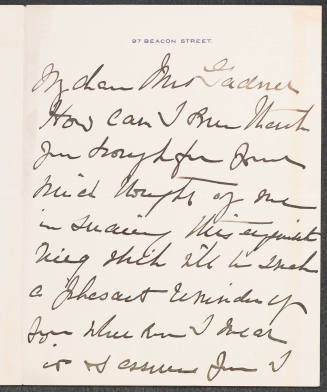 97 BEACON STREET.
My dear Mrs Gardner
How can I ever thank
you enough for your
kind thought of me
in sending this exquisite
thing which will be such
a pleasant reminder of
you when ever I wear
it & assure you I